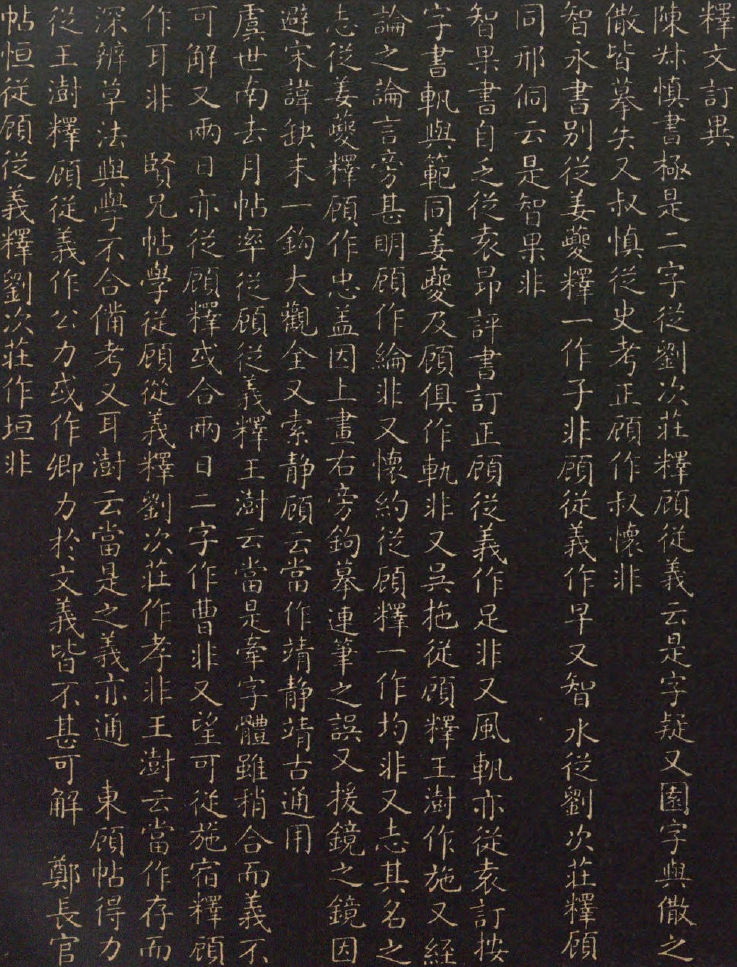 釋文訂異
陳叔慎書極是二字從劉次莊釋顧從義云是字疑又園字與儆之
儆皆摹失又叔慎從史考正顧作叔懷非
智永書別從姜夔釋一作子非顧從義作早又智水從劉次莊釋顧
同邢侗云是智果非
智果書自乏從袁昂評書訂正顧從義作足非又風軓亦從袁訂按
字書軓與範同姜夔及顧俱作軌非又吳拖從顧釋王澍作施又経
論之論言旁甚明顧作綸非又懷約從顧釋一作均非又志其名之
志從姜夔釋顧作忠盖因上畫右旁鉤摹連筆之誤又援鏡之鏡因
避宋諱缺末一鉤大觀全又索静顧云當作靖静靖古通用
虞世南去月帖率從顧從義釋王澍云當是牽字體雖稍合而義不
可解又兩日亦從顧釋或合兩日二字作曹非又望可從施宿釋顧
作耳非　賢兄帖學從顧從義釋劉次莊作孝非王澍云當作存而
深辨草法與學不合備考又耳澍云當是之義亦通　東顧帖得力
從王澍釋顧從義作公力或作卿力於文義皆不甚可解　鄭長官
帖恒從顧從義釋劉次莊作垣非